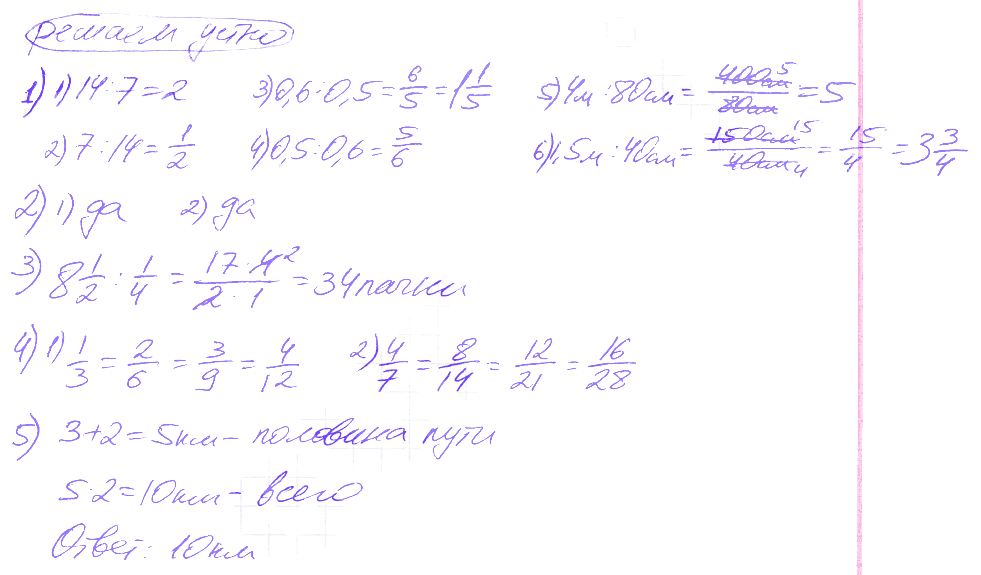 Решаем устно
1) 1) 14 : 7 = 2 3) 0,6 : 0,5 = 6/5 = 1 1/5 5) 4м : 80см = 400см 5/80см = 5
2) 7 : 14 = 1/2 4) 0,5 : 0,6 = 5/6 6) 1,5м : 40см = 150см 15/40см 4 = 15/4 = 3 3/4
2) 1) да 2) да
3) 8 1/2 : 1/4 = 17 · 4 2/2 · 1 = 34 пачки
4) 1) 1/3 = 2/6 = 3/9 = 4/12 2) 4/7 = 8/14 = 12/21 = 16/28
5) 3+2=5км – половина пути
5·2=10км – всего
Ответ: 10км